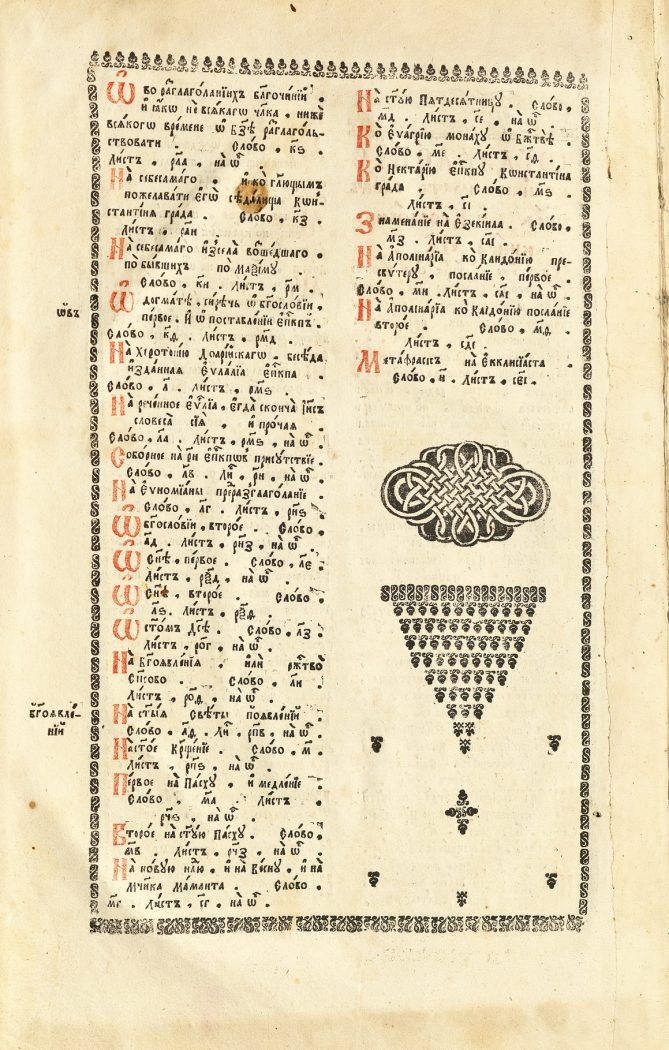 Ѿ во раꙁглаголанїихъ бл҃гочинїи .
и ꙗкѡ не всѧкагѡ чл҃ка , ниже
всѧкогѡ времене ѡ бз҃ѣ раꙁглаголь-
ствовати . Слово , к҃ѕ .
Листъ , рл҃а , на ѡ҃ .
На себесамаго . и ко гл҃ющымъ
пожелавати егѡ сѣдалища Кѡн-
стантинѧ града . Слово , к҃з .
Листъ ,
На себесамаго иꙁ села возшедшаго
по бывшихъ по Маѯiму .
Слово , к҃и . Листъ , р҃м .
ѡвъ
Ѡ догматѣ , сирѣчь ѡ бг҃ословїи ,
первое . И ѡ поставленїи еп҃кпъ .
Слово , к҃ѳ . Листъ , рм҃д .
На Хиротонїю Доарїйскагѡ , бесѣда
иꙁданнаѧ Еѵлалїа еп҃кпа
Слово , л҃ . Листъ , рм҃ѕ .
На реченное еѵⷢ҇лїа , егда сконча іи҃съ
словеса сїѧ . и прочаѧ
Слово , л҃а . Листъ , рм҃ѕ , на ѡ҃ .
Соборное на р҃н еп҃кпѡвъ присутствїе
Слово , л҃в . Ли , р҃н , на ѡ҃ .
На Еѵномїаны преразглаголанїе .
Слово , л҃г . Листъ , рн҃ѕ .
Ѡ бг҃ословїи , второе . Слово .
л҃д . Листъ , рн҃з , на ѡ҃ .
Ѡ сн҃ѣ , первое . Слово , л҃е
Листъ , на ѡ҃ .
Ѡ сн҃ѣ , второе . Слово .
л҃ѕ . Листъ ,
Ѡ стомъ дс҃ѣ . Слово , л҃з
Листъ , ро҃г , на ѡ҃ .
На Бг҃оѧвленїѧ . или рж҃тво
сп҃сово . Слово , л҃и .
Листъ , на ѡ҃ .
бг҃оѧвле-
нїи
На ст҃ыѧ свѣты поѧвленїй
Слово , л҃ѳ . Ли , рп҃в , на ѡ҃ .
На стое Крщ҃енїе . Слово , м҃
Листъ , рп҃ѕ , на ѡ҃ .
Первое на Пасху , и медленїе .
Слово . м҃а Листъ .
рч҃ѕ , на ѡ҃ .
Второе на ст҃ую Пасху . Слово .
м҃в . Листъ , рч҃з , на ѡ҃ .
На новую нд҃лю , и на весну , и на
мч҃ника Маманта . Слово .
м҃г . Листъ , с҃г , на ѡ҃ .
На ст҃ую Пѧтдесѧтницу . Слово .
м҃д . Листъ , с҃е , на ѡ҃ .
Ко Еѵагрїю монаху ѡ бж҃твѣ .
Слово , м҃е . Листъ , с҃ѳ .
Ко Нектарїю еп҃кпу Кѡнстантїна
града Слово , м҃ѕ .
Листъ , с҃і
Знаменанїе на Езекїила . Слово .
м҃з . Листъ , са҃і .
На Аполїнарїа ко Клидонїю пре-
сѵтеру , посланїе , первое .
Слово , м҃и . Листъ , са҃і , на ѡ҃ .
На Аполїнарїа ко Клидонїю посланїе
второе . Слово , м҃ѳ .
Листъ , сд҃і .
Метафрасись на Екклисїаста
Слово , н҃ . Листъ , се҃і .